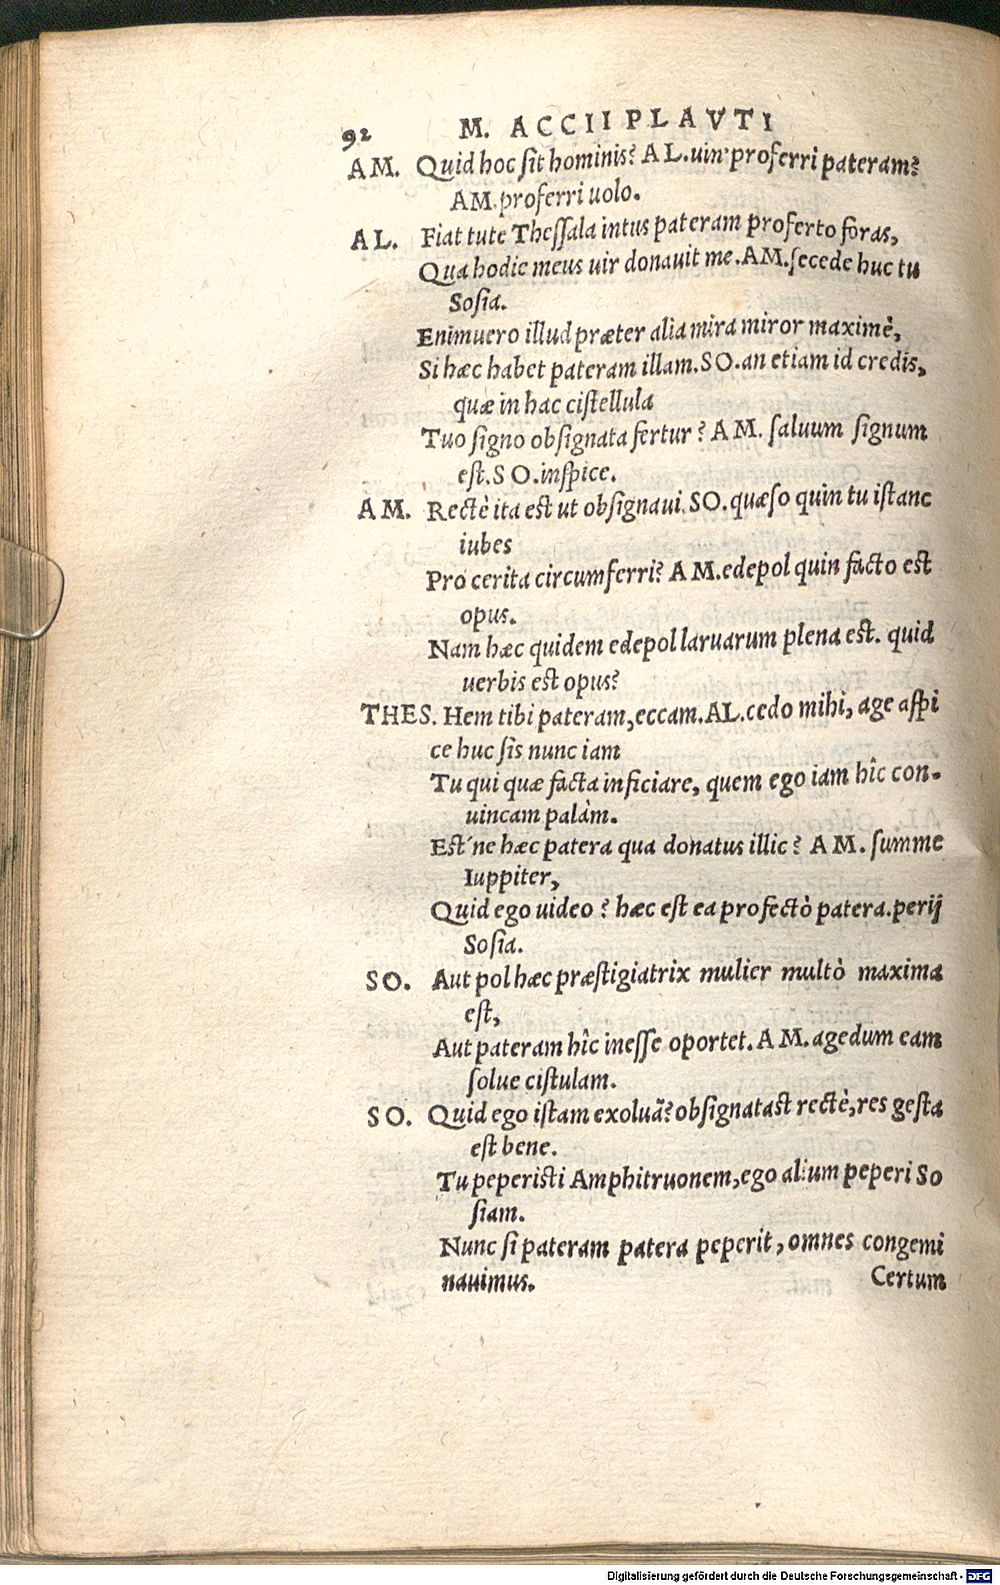 92 M. ACCII PLAVTI
AM. Quid hoc sit hominis? AL.uin' proferri pateram?
AM.proferri uolo.
AL. Fiat tute Thessala intus pateram proferto foras,
Qua hodie meus uir donauit me.AM.secede huc tu
Sosia.
Enimuero illud præter alia mira miror maximè,
Si hæc habet pateram illam.SO.an etiam id credis,
quæ in hac cistellula
Tuo signo obsignata fertur? AM. saluum signum
est.SO.inspice.
AM. Rectè ita est ut obsignaui.SO.quæso quin tu istanc
iubes
Pro cerita circumferri? AM.edepol quin facto est
opus.
Nam hæc quidem edepol laruarum plena est. quid
uerbis est opus?
THES. Hem tibi pateram,eccam.AL.cedo mihi, age aspi
ce huc sis nunc iam
Tu qui quæ facta inficiare, quem ego iam hîc con-
uincam palàm.
Est'ne hæc patera qua donatus illic? AM. summe
Iuppiter,
Quid ego uideo? hæc est ea profectò patera.perij
Sosia.
SO. Aut pol hæc præstigiatrix mulier multò maxima
est,
Aut pateram hîc inesse oportet.AM.agedum eam
solue cistulam.
SO. Quid ego istam exoluã?obsignatast rectè,res gesta
est bene.
Tu peperisti Amphitruonem,ego alium peperi So
siam.
Nunc si pateram patera peperit, omnes congemi
nauimus. Certum
Digitalisierung gefördert durch die Deutsche Forschungsgemeinschaft - DFG